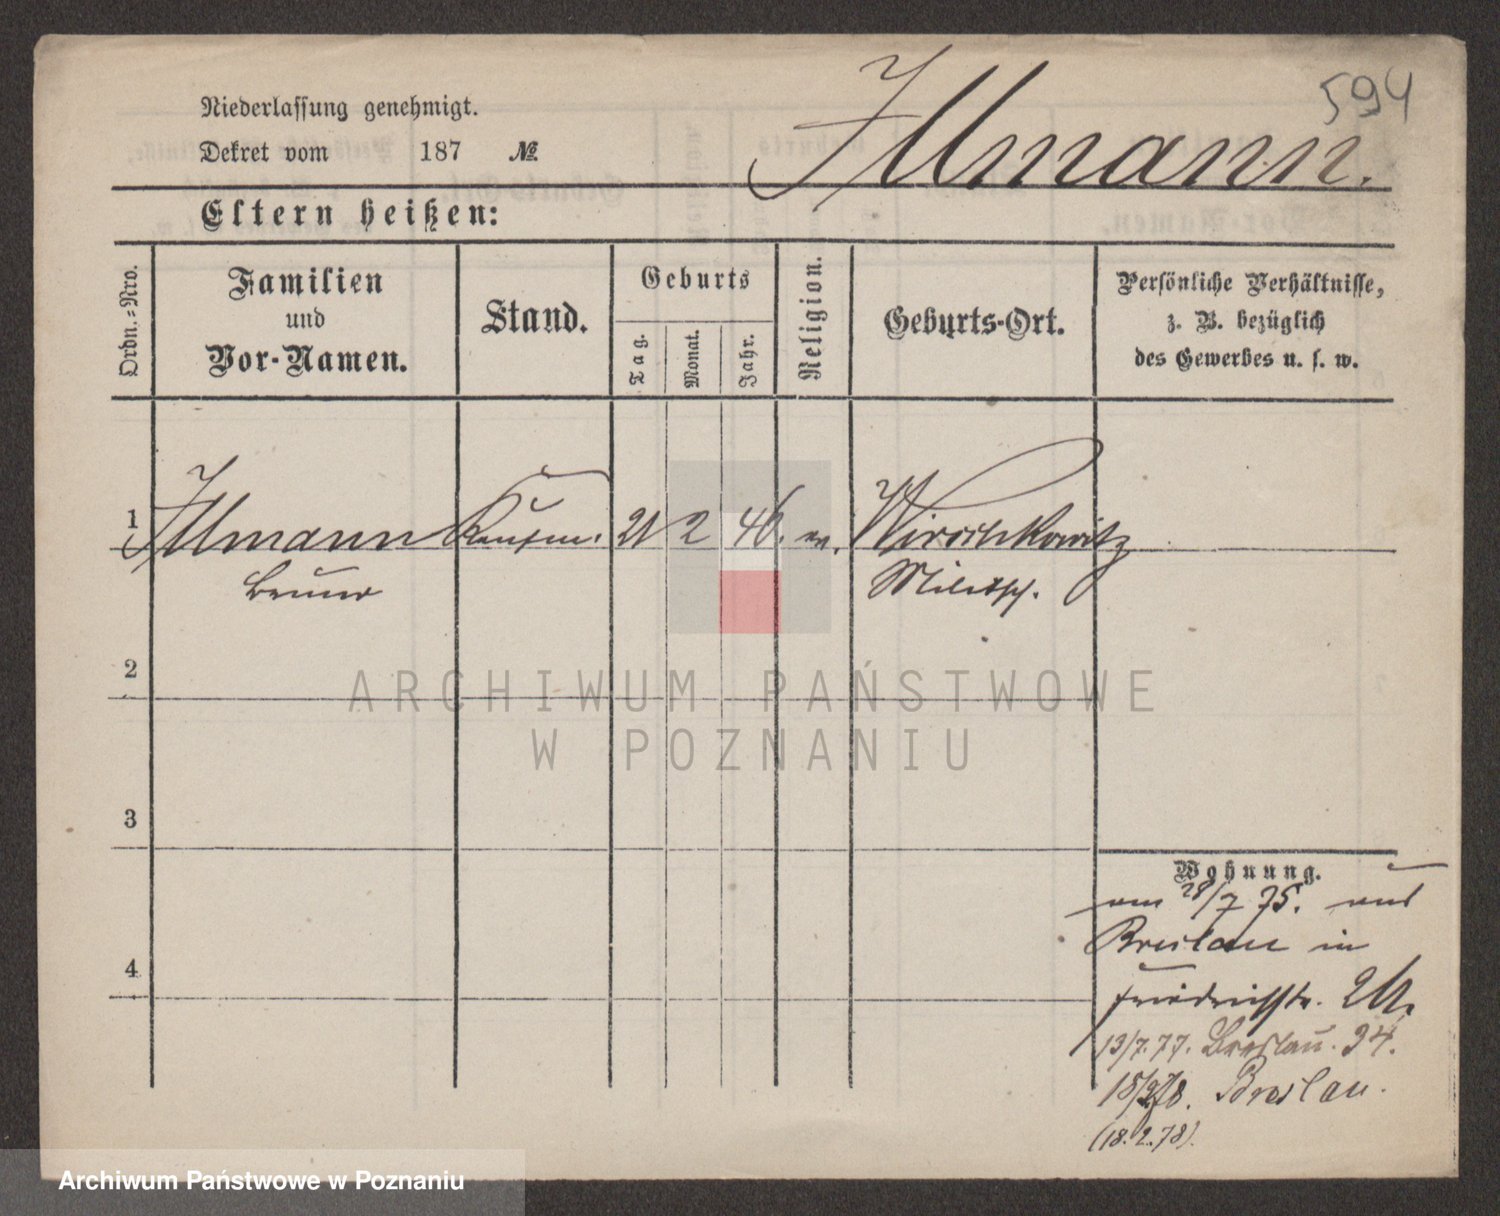 594
Illmann.
Niederlassung genehmigt.
Dekret vom 187 №
Eltern heißen:
Ordn.-Nro.
Familien
und
Vor-Namen.
Stand.
Geburts
Tag.
Monat.
Jahr.
Religion.
Geburts-Ort.
Persönliche Verhältnisse,
z. B. bezüglich
des Gewerbes u. s. w.
1 Illmann Kaufm. 21 2 46. ev. Wirschkowitz
Bruno Militsch.
2
3
4
Wohnung.
am 28/7 75. aus
Breslau in
Friedrichstr.
13/7. 77. Breslau. 34.
Breslau.
(18.2.78).
ARCHIWUM PAŃSTWOWE
W POZNANIU
Archiwum Państwowe w Poznaniu